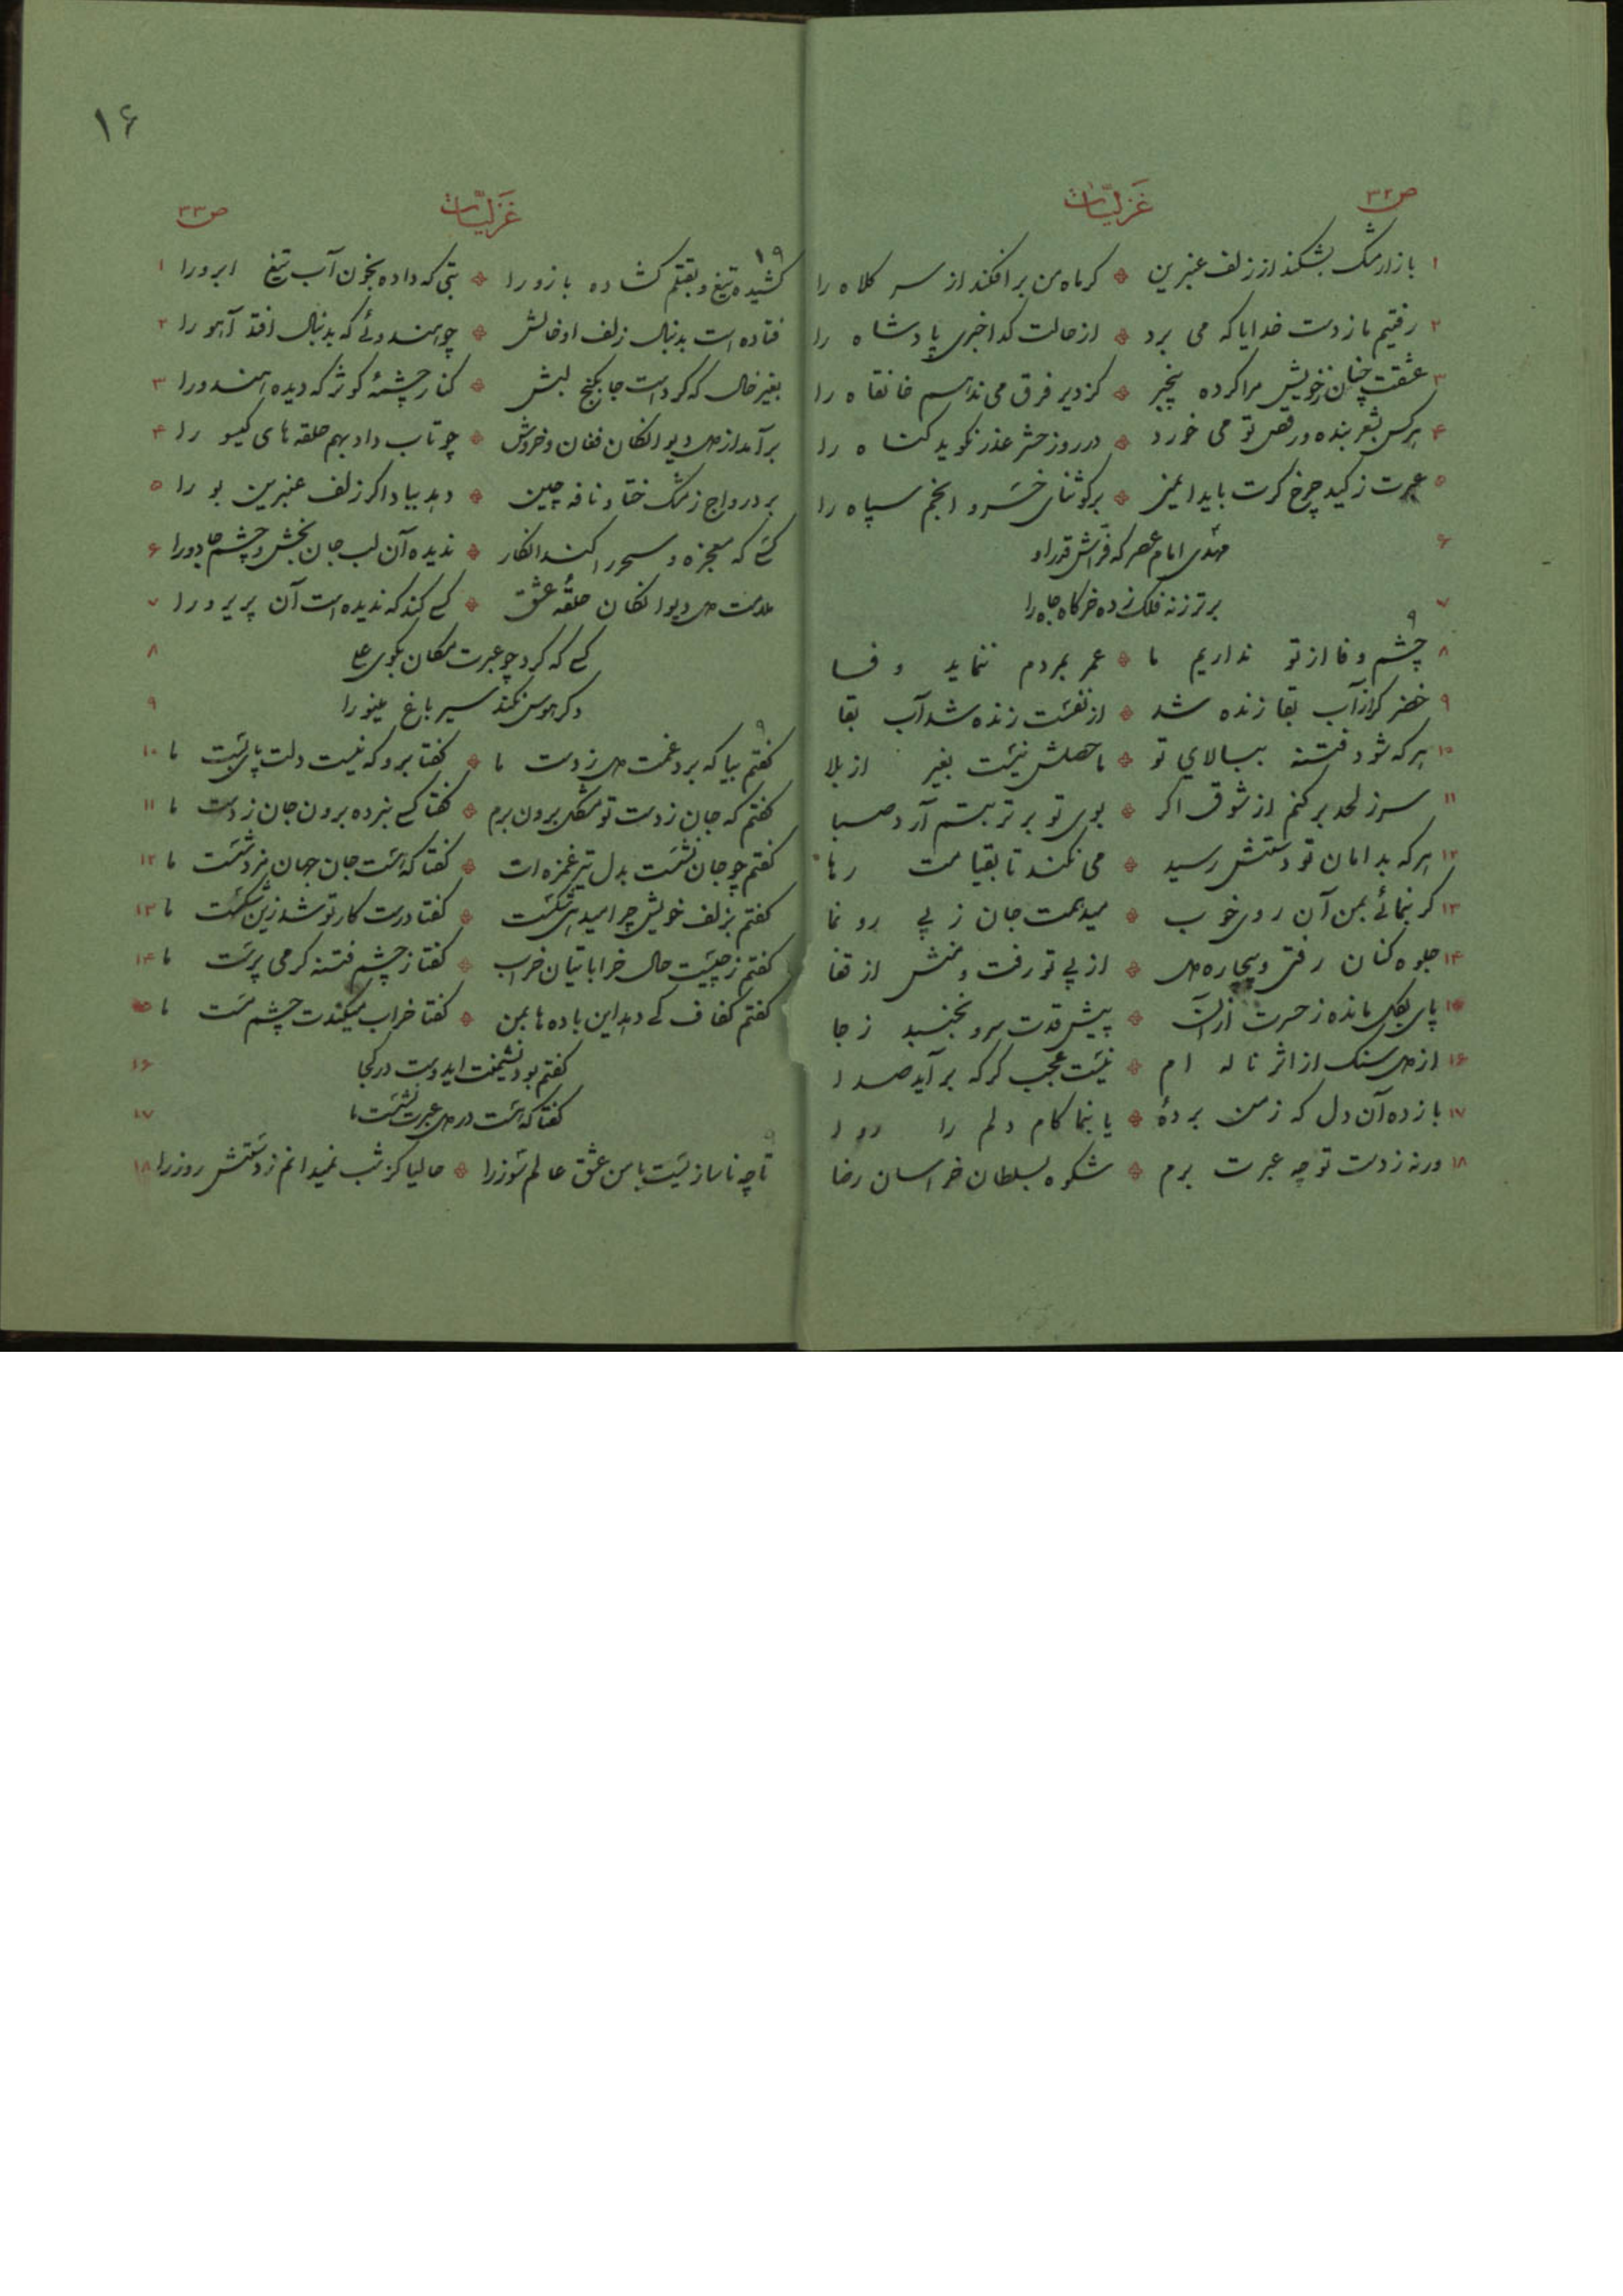 ص ۳۲ غزلیّات
۱ بازار مشک بشکند از زلف عنبرین ٭ کر ماه من برافکند از سر کلاه را
۲ رفتیم ما ز دست خدایا که می برد ٭ از حالت کدا خبری پادشاه را
۳ عشقت چنان ز خویش مرا کرده بیخبر ٭ کز دیر فرق می ندهم خانقاه را
۴ هر کس بشعر بنده و رقص تو می خورد ٭ در روز حشر عذر نکوید کناه را
۵ عبرت ز کید چرخ کرت باید ایمنی ٭ بر کو ثنای خسرو انجم سپاه را
۶ مهدی امام عصر که فراش قدر او
۷ برتر ز نه فلک زده خرکاه جاه را
۹
۸ چشم وفا از تو نداریم ما ٭ عمر بمردم ننماید وفا
۹ خضر کر از آب بقا زنده شد ٭ از نفست زنده شد آب بقا
۱۰ هر که شود فتنه ببالای تو ٭ ماحصلش نیست بغیر از بلا
۱۱ سر ز لحد بر کنم از شوق اکر ٭ بوی تو بر تربتم آرد صبا
۱۲ هر که بدامان تو دستش رسید ٭ می نکند تا بقیامت رها
۱۳ کر بنمائی بمن آن روی خوب ٭ میدهمت جان ز پی رو نما
۱۴ جلوه کنان رفتی و بیچاره دل ٭ از پی تو رفت و منش از قفا
۱۵ پای بکل مانده ز حسرت از آن ٭ پیش قدت سرو نجنبد ز جا
۱۶ از دل سنک از اثر ناله ام ٭ نیست عجب کر که بر آید صدا
۱۷ باز ده آن دل که ز من بردهٔ ٭ یا بنما کام دلم را روا
۱۸ ورنه ز دست تو چه عبرت برم ٭ شکوه بسلطان خراسان رضا
۱۶
غزلیّات ص ۳۳
۱۹
کشیده تیغ و بقتلم کشاده بازو را ٭ بتی که داده بخون آب تیغ ابرو را ۱
فتاده است بدنبال زلف او خالش ٭ چو هندوئی که بدنبال افتد آهو را ۲
بغیر خال که کرد است جا بکنج لبش ٭ کنار چشمهٔ کوثر که دیده هندو را ۳
بر آمد از دل دیوانکان فغان و خروش ٭ چو تاب داد بهم حلقه های کیسو را ۴
برد رواج ز مشک ختا و نافه چین ٭ دهد بباد اکر زلف عنبرین بو را ۵
کسی که معجزه و سحر را کند انکار ٭ ندیده آن لب جان بخش و چشم جادو را ۶
ملامت دل دیوانکان حلقهٔ عشق ٭ کسی کند که ندیده است آن پریرو را ۷
کسی که کرد چو عبرت مکان بکوی علی ۸
دکر هوس نکند سیر باغ مینو را ۹
۹
کفتم بیا که برد غمت دل ز دست ما ٭ کفتا برو که نیست دلت پای بست ما ۱۰
کفتم که جان ز دست تو مشکل برون برم ٭ کفتا کسی نبرده برون جان ز دست ما ۱۱
کفتم چو جان نشست بدل تیر غمزه ات ٭ کفتا که هست جان جهان مزد شست ما ۱۲
کفتم بزلف خویش چرا میدهی شکست ٭ کفتا درست کار تو شد زین شکست ما ۱۳
کفتم ز چیست حال خراباتیان خراب ٭ کفتا ز چشم فتنه کر می پرست ما ۱۴
کفتم کفاف کی دهد این باده ها بمن ٭ کفتا خراب میکندت چشم مست ما ۱۵
کفتم بود نشیمنت ایدوست در کجا ۱۶
کفتا که هست در دل عبرت نشست ما ۱۷
۹
تا چه ناسازیست با من عشق عالم سوز را ٭ حالیا کز شب نمیدانم ز دستش روز را ۱۸